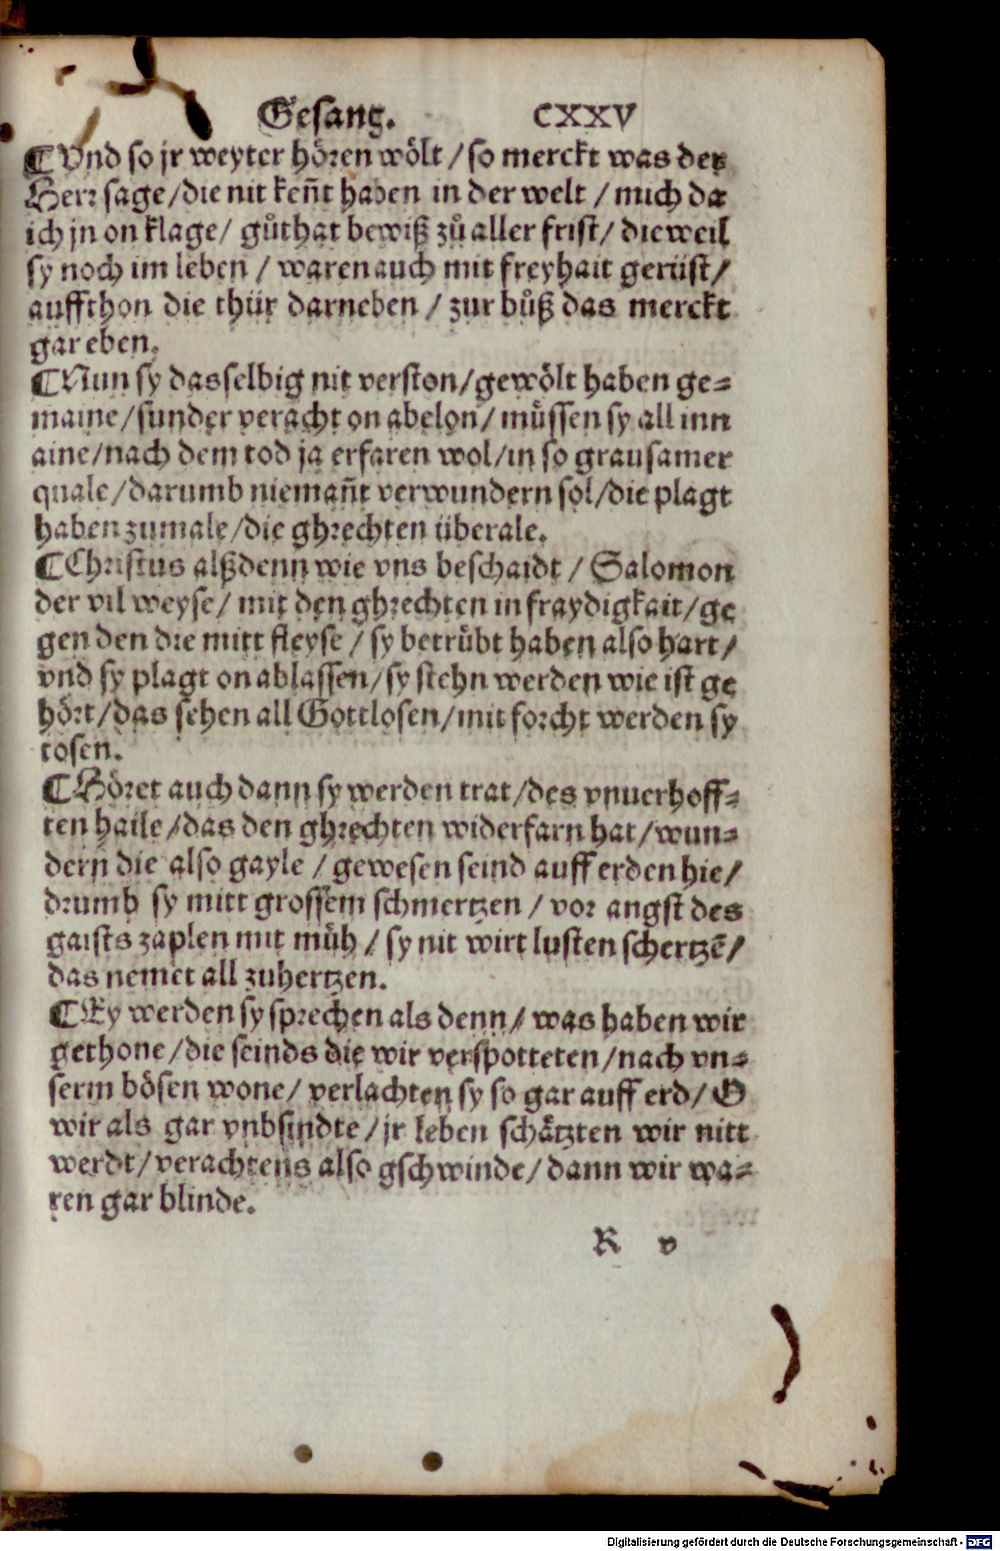 Gesang. CXXV
¶Vnd so jr weyter hören wölt / so merckt was der
Herr sage/die nit keñt haben in der welt / mich da
ich jn on klage/ gůthat bewiß zů aller frist/ dieweil
sy noch im leben / waren auch mit freyhait gerüst/
auffthon die thür darneben / zur bůß das merckt
gar eben.
¶Nun sy dasselbig nit verston/gewölt haben ge-
maine/sunder veracht on abelon/ müssen sy all inn
aine/nach dem tod ja erfaren wol/in so grausamer
quale/darumb niemañt verwundern sol/die plagt
haben zumale/die ghrechten überale.
¶Christus alßdenn wie vns beschaidt / Salomon
der vil weyse/ mit den ghrechten in fraydigkait/ge
gen den die mitt fleyse / sy betrübt haben also hart/
vnd sy plagt on ablassen/sy stehn werden wie ist ge
hört/das sehen all Gottlosen/mit forcht werden sy
tosen.
¶Höret auch dann sy werden trat/des vnuerhoff-
ten haile/das den ghrechten widerfarn hat/wun-
dern die also gayle / gewesen seind auff erden hie/
drumb sy mitt grossem schmertzen / vor angst des
gaists zaplen mit müh / sy nit wirt lusten schertzē/
das nemet all zuhertzen.
¶Ey werden sy sprechen als denn/ was haben wir
gethone/die seinds die wir verspotteten/nach vn-
serm bösen wone/ verlachten sy so gar auff erd/ O
wir als gar vnbsindte/jr leben schätzten wir nitt
werdt/verachtens also gschwinde/dann wir wa-
ren gar blinde.
R v
Digitalisierung gefördert durch die Deutsche Forschungsgemeinschaft - DFG